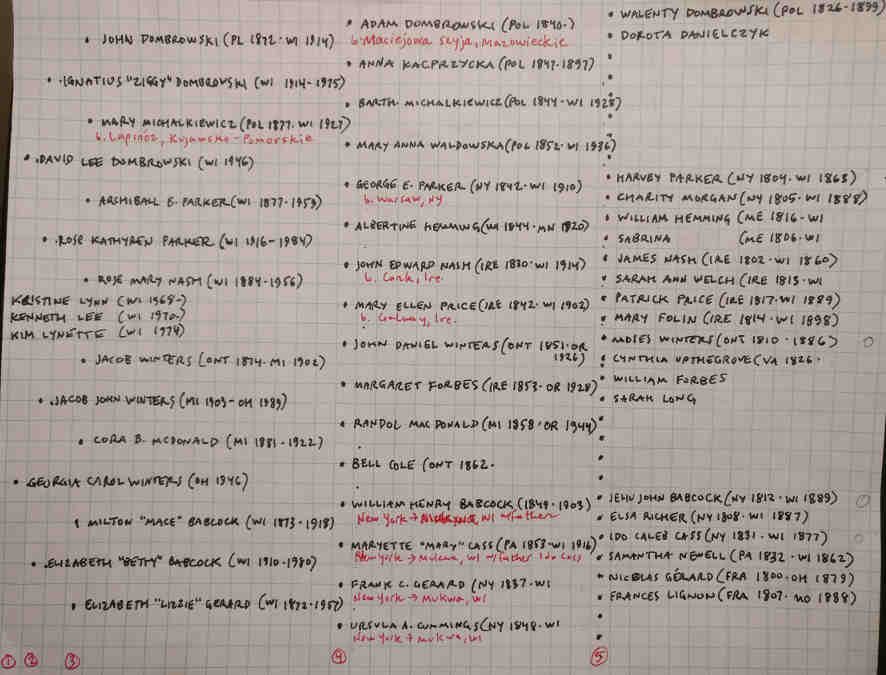 • JOHN DOMBROWSKI (PL 1872 · WI 1914)
• IGNATIUS "ZIGGY" DOMBROWSKI (WI 1914 - 1975)
• MARY MICHALKIEWICZ (POL 1877 · WI 1927)
b. Lapinóz, Kujawsko-Pomorskie
• DAVID LEE DOMBROWSKI (WI 1946)
• ARCHIBALL E. PARKER (WI 1877 - 1953)
• ROSE KATHYREN PARKER (WI 1916 - 1984)
• ROSE MARY NASH (WI 1884 - 1956)
KRISTINE LYNN (WI 1968-)
KENNETH LEE (WI 1970-)
KIM LYNETTE (WI 1974)
• JACOB WINTERS (ONT 1874 - MI 1902)
• JACOB JOHN WINTERS (MI 1903 - OH 1989)
• CORA B. MCDONALD (MI 1881 - 1922)
• GEORGIA CAROL WINTERS (OH 1946)
• MILTON "MACE" BABCOCK (WI 1873 - 1918)
• ELIZABETH "BETTY" BABCOCK (WI 1910 - 1980)
• ELIZABETH "LIZZIE" GERARD (WI 1872 - 1957)
① ② ③
• ADAM DOMBROWSKI (POL 1840-)
b. Maciejowa Szyja, Mazowieckie
• ANNA KACPRZYCKA (POL 1847 - 1897)
• BARTH. MICHALKIEWICZ (POL 1844 - WI 1928)
• MARY ANNA WALDOWSKA (POL 1852 · WI 1936)
• GEORGE E. PARKER (NY 1842 · WI 1910)
b. Warsaw, NY
• ALBERTINE HEMMING (WI 1844 · MN 1920)
• JOHN EDWARD NASH (IRE 1830 · WI 1914)
b. Cork, Ire.
• MARY ELLEN PRICE (IRE 1842 · WI 1902)
b. Galway, Ire.
• JOHN DANIEL WINTERS (ONT 1851 · OR 1926)
• MARGARET FORBES (IRE 1853 - OR 1928)
• RANDOL MAC DONALD (MI 1858 · OR 1944)
• BELL COLE (ONT 1862 ·
• WILLIAM HENRY BABCOCK (1849 - 1903)
New York → WI w/father
• MARYETTE "MARY" CASS (PA 1853 - WI 1916)
New York → Mukwa, WI w/father Ido Cass
• FRANK C. GERARD (NY 1837 · WI
New York → Mukwa, WI
• URSULA A. CUMMINGS (NY 1848 · WI
New York → Mukwa, WI
④
• WALENTY DOMBROWSKI (POL 1826 - 1899)
• DOROTA DANIELCZYK
• HARVEY PARKER (NY 1804 · WI 1863)
• CHARITY MORGAN (NY 1805 · WI 1888)
• WILLIAM HEMMING (ME 1816 - WI
• SABRINA (ME 1806 · WI
• JAMES NASH (IRE 1802 - WI 1860)
• SARAH ANN WELCH (IRE 1815 · WI
• PATRICK PRICE (IRE 1817 · WI 1889)
• MARY FOLIN (IRE 1814 · WI 1898)
• WINTERS (ONT 1810 - 1886)
• CYNTHIA UPTHEGROVE (VA 1826 ·
• WILLIAM FORBES
• SARAH LONG
• JEHU JOHN BABCOCK (NY 1812 · WI 1889)
• ELSA RICHER (NY 1808 · WI 1887)
• IDO CALEB CASS (NY 1831 · WI 1877)
• SAMANTHA NEWELL (PA 1832 · WI 1862)
• NICOLAS GÉRARD (FRA 1800 · OH 1879)
• FRANCES LIGNON (FRA 1807 · MO 1888)
⑤